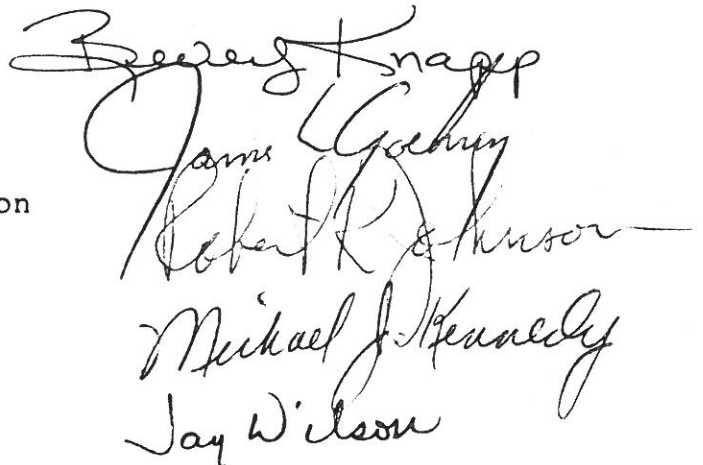 Knapp
James L Goehring
on
Robert K Johnson
Michael J. Kennedy
Jay Wilson